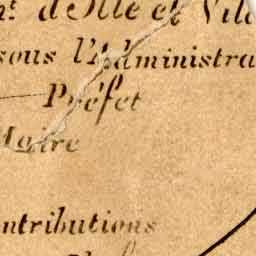 t. d'Ille et Vila
sous l'Administra
Préfet
Maire
ntributions